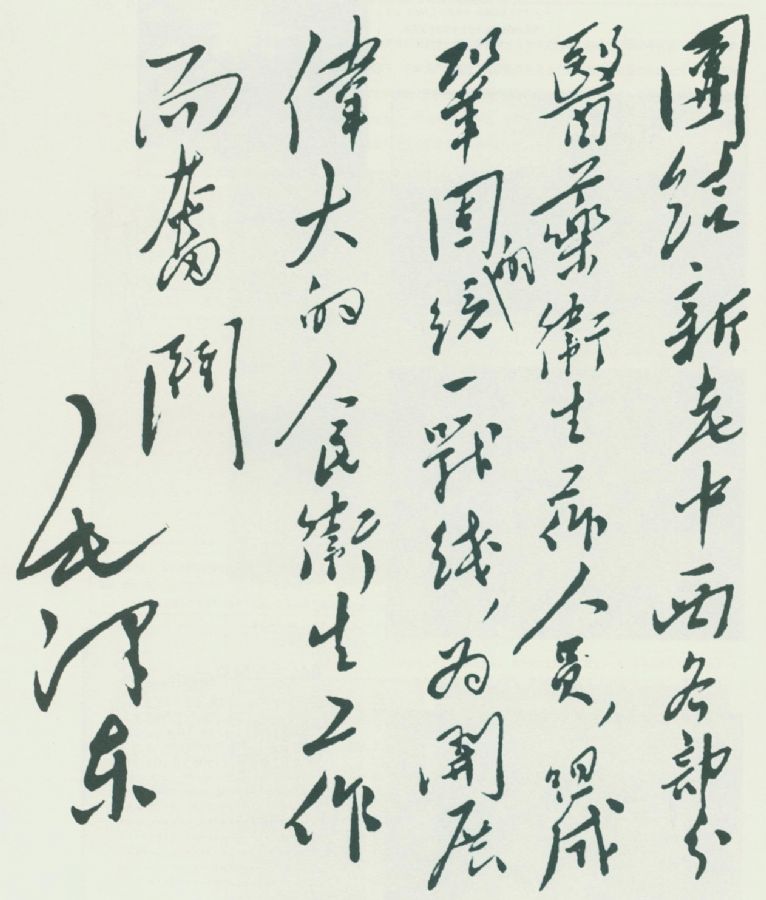 團结新老中西各部分
醫藥衛生工作人員，組成
鞏固的統一戰线，为開展
偉大的人民衛生工作
而奮鬥
毛泽东